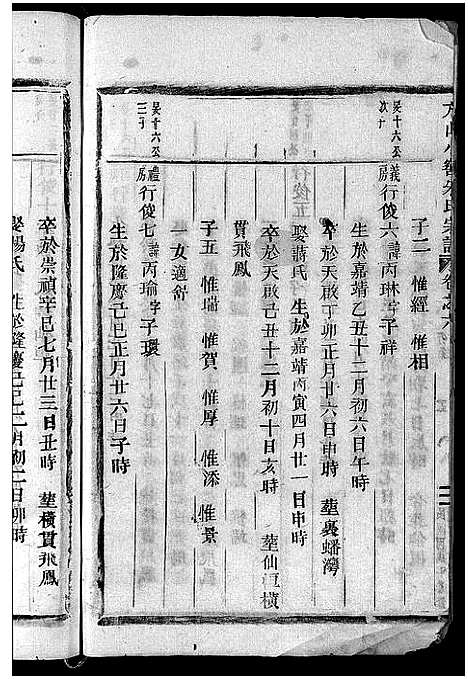 子二 惟經 惟相
吴十六公次子
義房行俊六諱丙琳字子祥
生於嘉靖乙丑十二月初六日午時
卒於天啟丁卯正月廿六日申時 塟裏蟠灣
娶蔣氏 生於嘉靖丙寅四月廿一日申時
卒於天啟己丑十二月初十日亥時 塟仙橫
貫飛鳳
子五 惟瑞 惟賀 惟厚 惟添 惟景
一女適舒
吴十六公三子
禮房行俊七諱丙瑜字子環
生於隆慶己巳正月廿六日子時
卒於崇禎辛巳七月廿三日丑時 塟橫貫飛鳳
娶楊氏 生於隆慶己巳二月初二日卯時